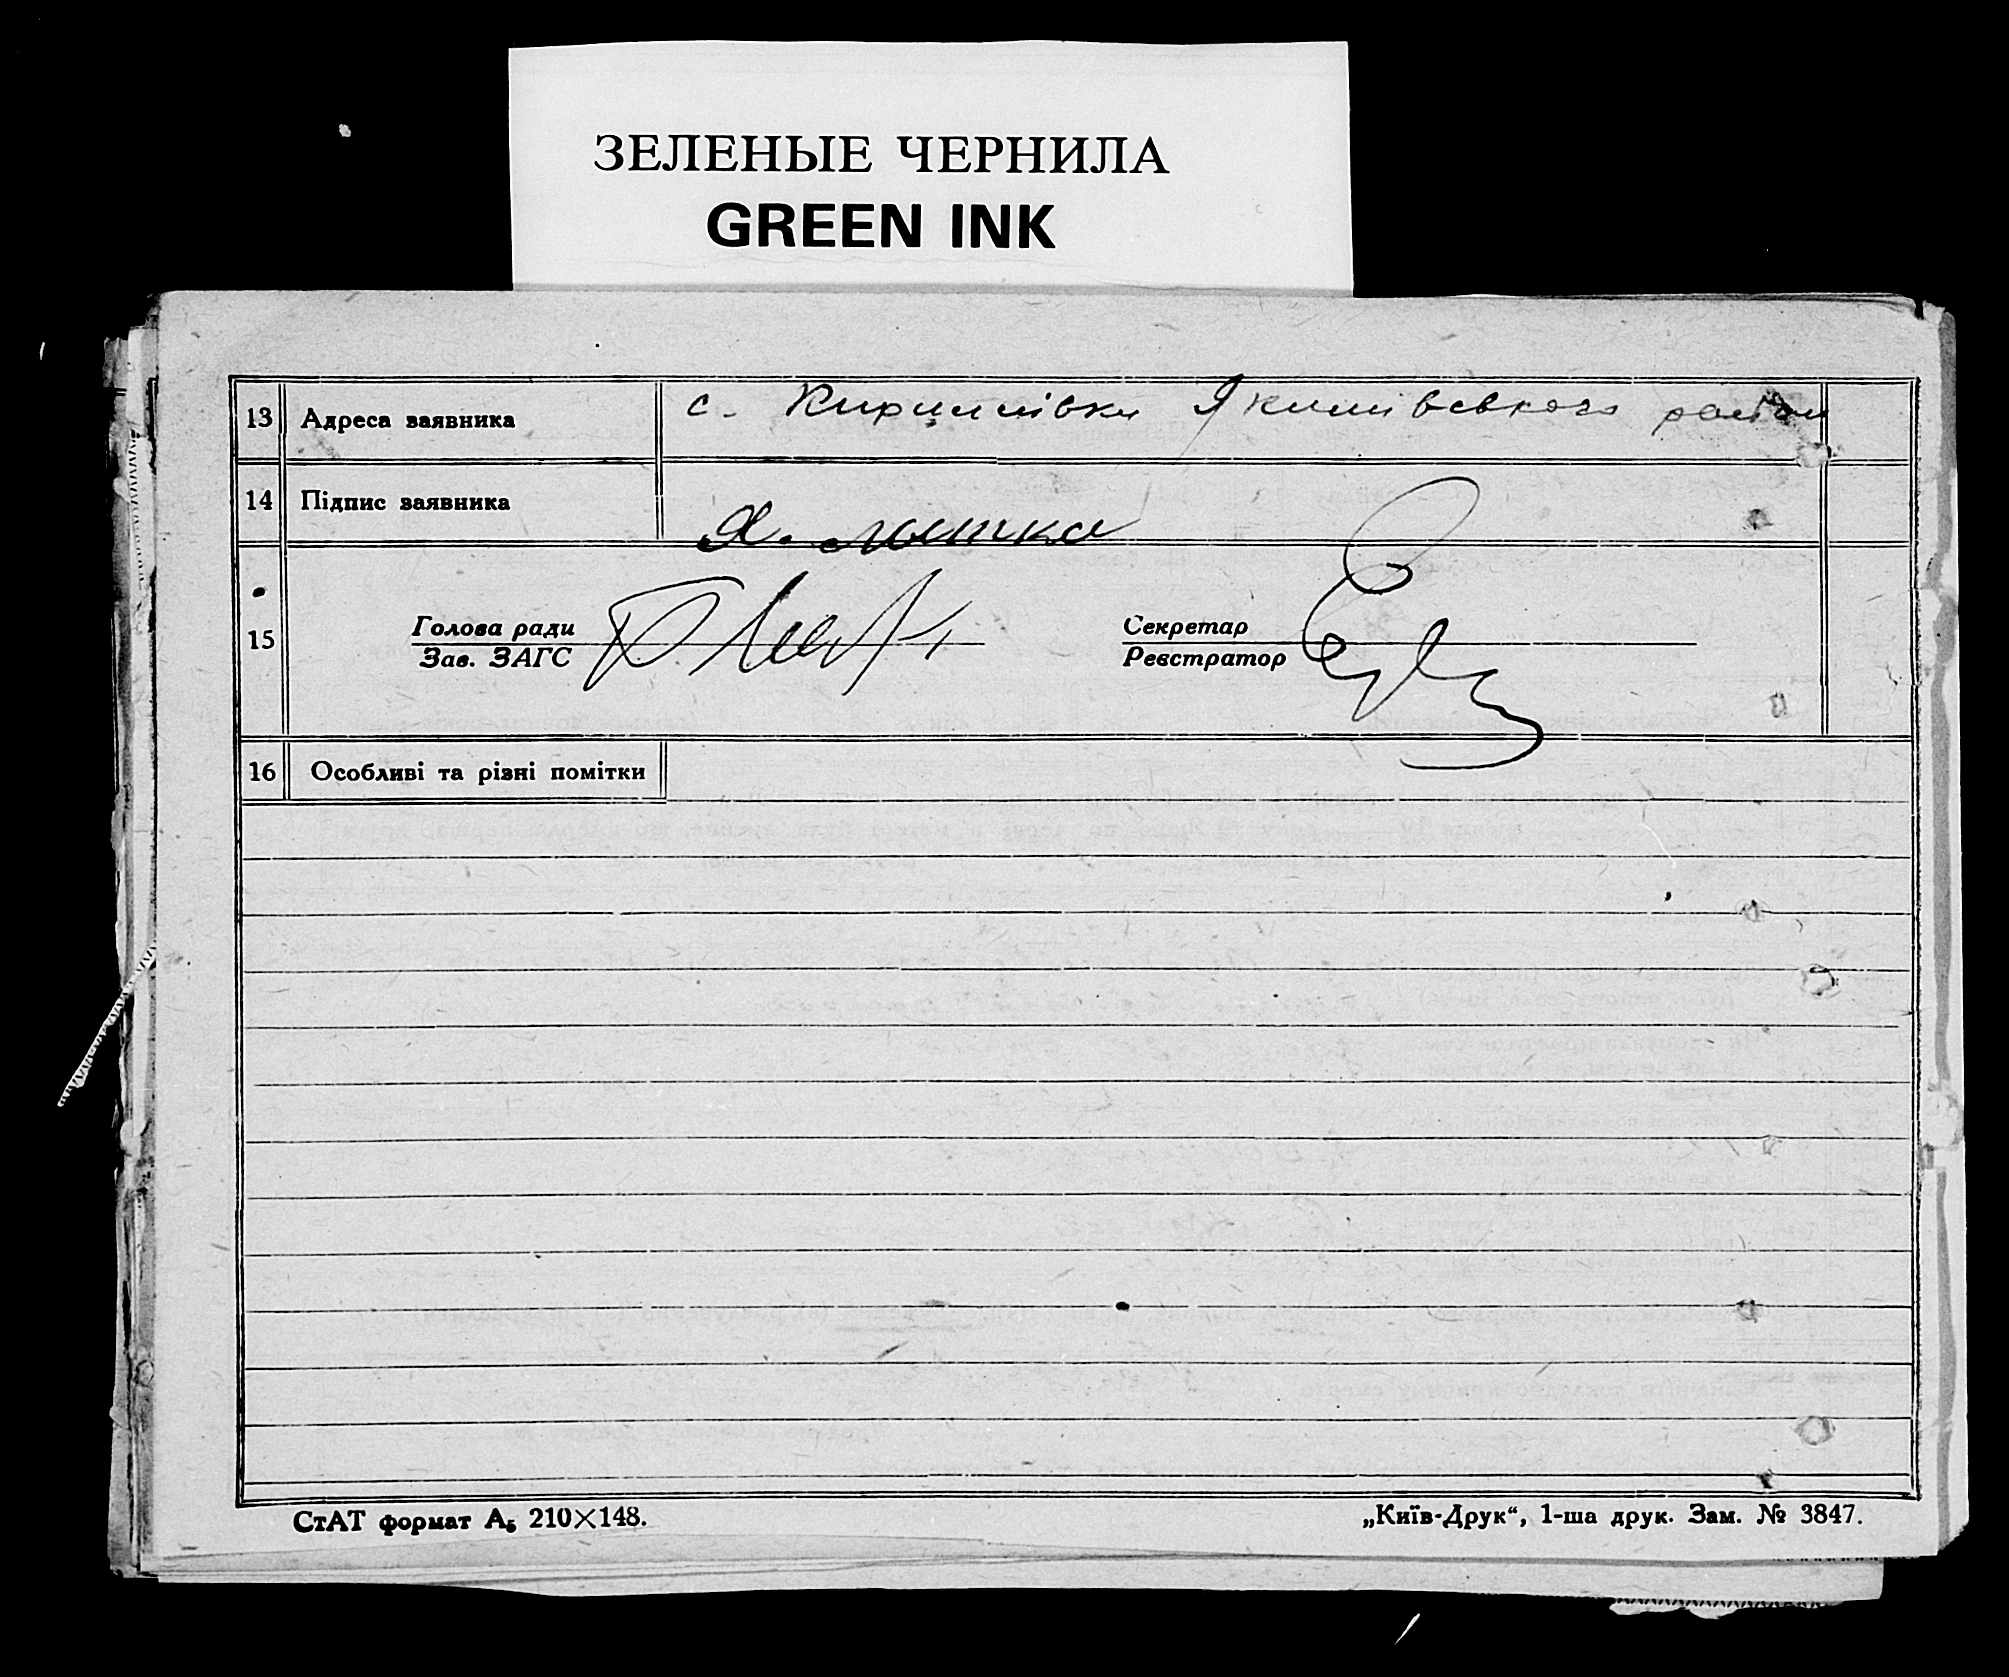 ЗЕЛЕНЫЕ ЧЕРНИЛА
GREEN INK
13 Адреса заявника с. Кирилівка Якимівського району
14 Підпис заявника Я.
15 Голова ради Секретар
Зав. ЗАГС Реєстратор
16 Особливі та різні помітки
СтАТ формат А₅ 210×148. „Київ-Друк“, 1-ша друк. Зам. № 3847.